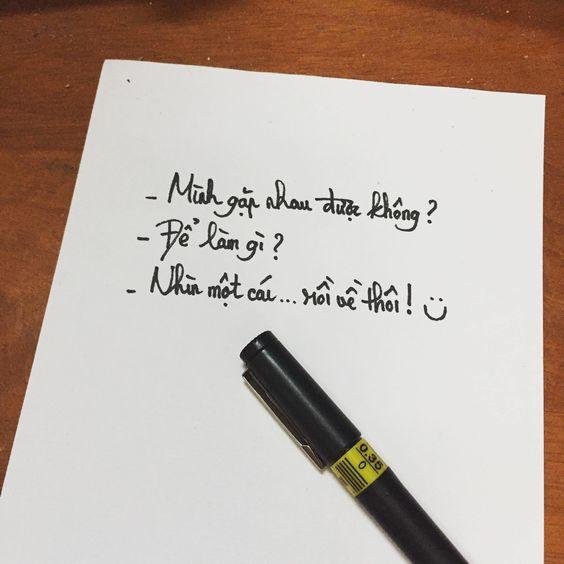 - Mình gặp nhau được không?
- Để làm gì?
- Nhìn một cái... rồi về thôi! :)
0.35
0